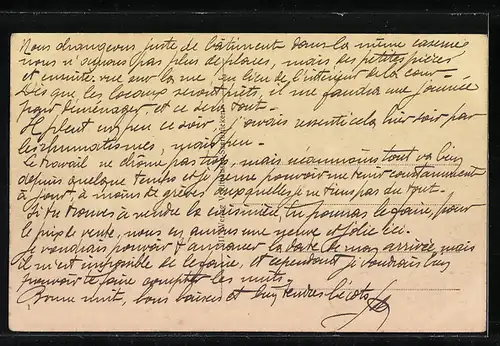 Nous changeons juste de bâtiment dans la même caserne
nous n'aurons pas plus de places, mais des petites pièces
et ensuite vue sur la rue, au lieu de l'intérieur de la cour -
Dès que les locaux seront prêts, il me faudra une journée
pour déménager et ce sera tout -
Il pleut un peu ce soir, j'avais ressenti cela hier soir par
les rhumatismes, mais rien -
Le travail ne chôme pas trop, mais néanmoins tout va bien
depuis quelque temps et je pense pouvoir me tenir constamment
à jour, à moins de grèves auxquelles je ne tiens pas du tout -
Si tu trouves à vendre la cuisinière tu pourras le faire, pour
le prix de vente, nous en aurons une neuve et jolie ici -
Je voudrais pouvoir t'annoncer la date de mon arrivée, mais
il m'est impossible de le faire, et cependant je voudrais bien
pouvoir te faire compter les nuits -
Bonne nuit, bons baisers et bien tendres bécots